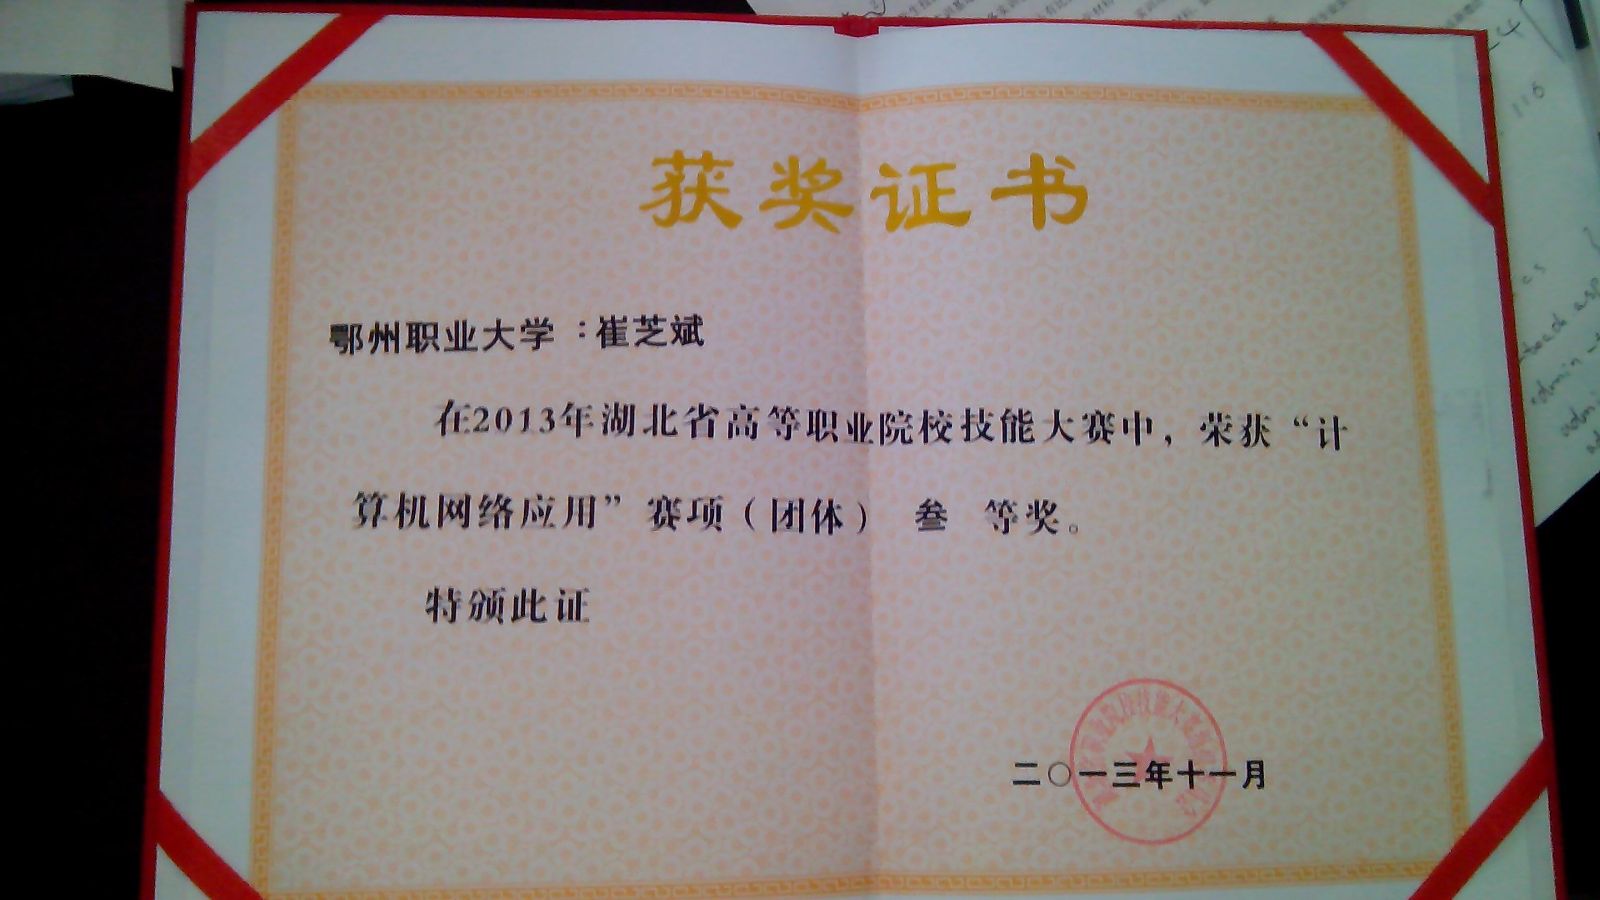 获奖证书
鄂州职业大学：崔芝斌
在2013年湖北省高等职业院校技能大赛中，荣获“计
算机网络应用”赛项（团体） 叁 等奖。
特颁此证
二〇一三年十一月
116